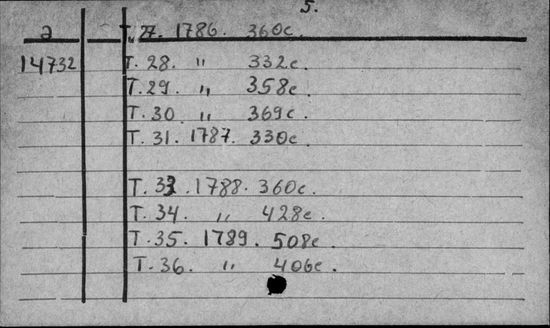 5.
а T. 27. 1786. 360с.
14732 T. 28. " 332с.
T. 29. " 358с.
T. 30. " 369с.
T. 31. 1787. 330с.
T. 33. 1788. 360с.
T. 34. " 428с.
T. 35. 1789. 508с.
T. 36. " 406с.